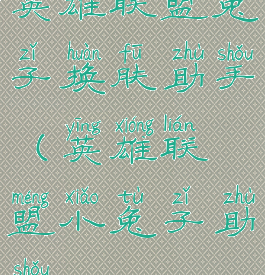 英雄联盟兔
zǐ huàn fū zhù shǒu
子换肤助手
yīng xióng lián
(英雄联
méng xiǎo tù zǐ zhù
盟小兔子助
shǒu